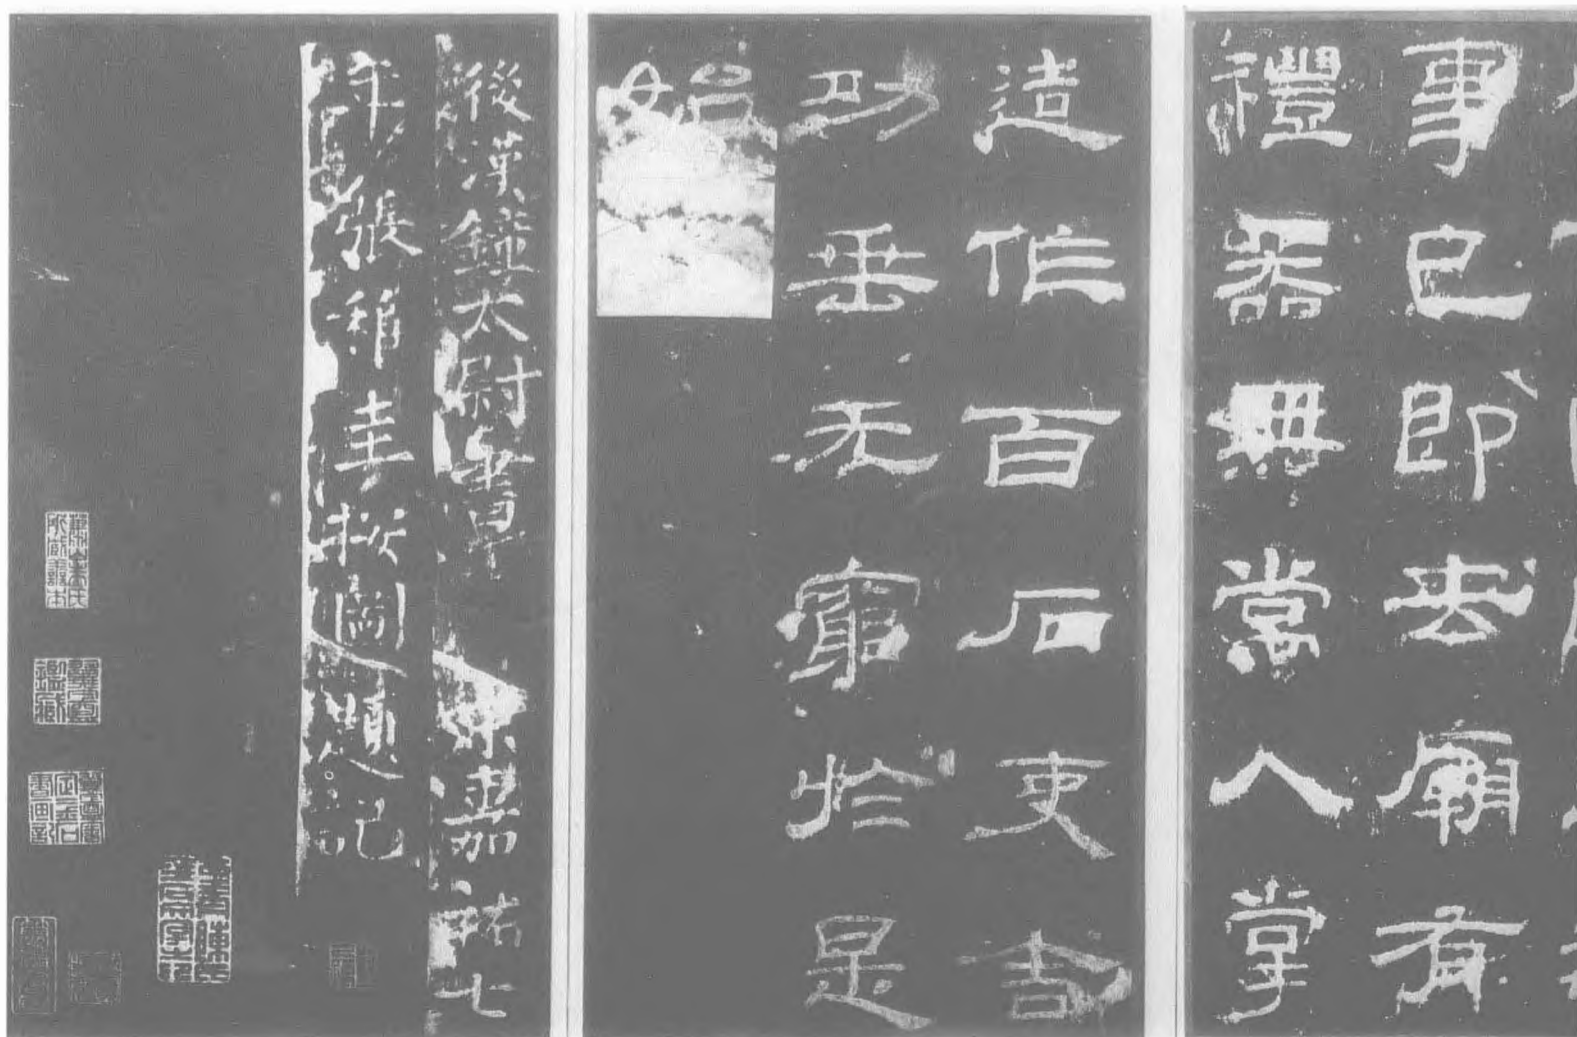 事已即去廟有
禮器無常人掌
造作百石吏舍
功垂无窮於是
始
後漢鍾太尉書 宋嘉祐七
年張稚圭按圖題記